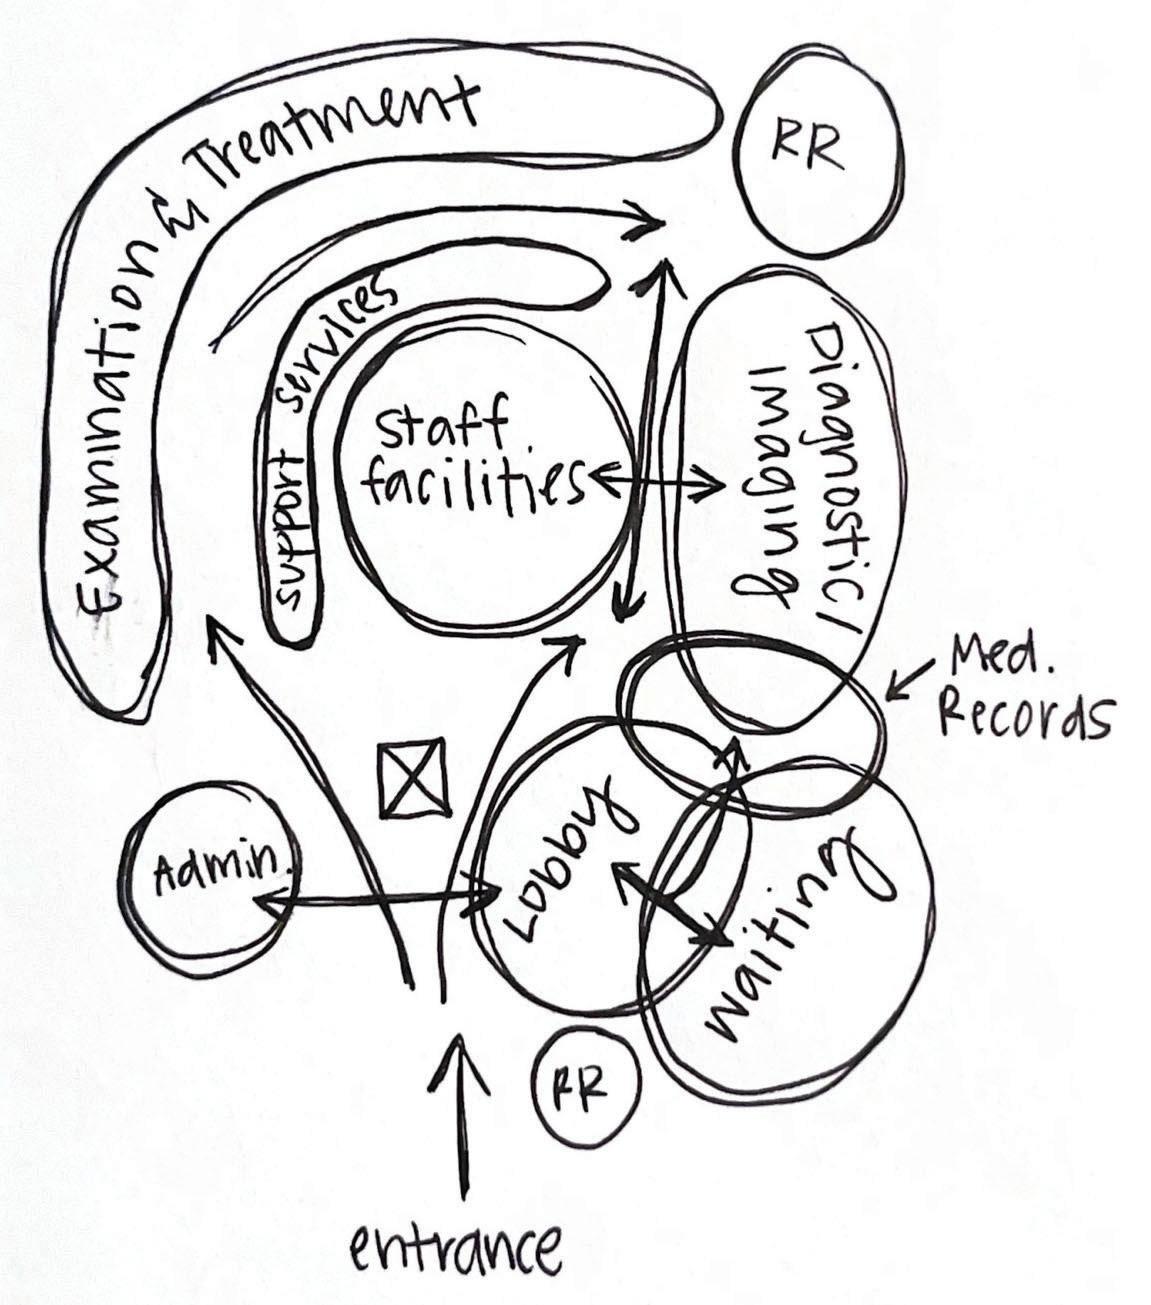 Examination & Treatment
RR
support services
staff
facilities
Diagnostic/
Imaging
Med.
Records
Admin.
Lobby
Waiting
RR
entrance